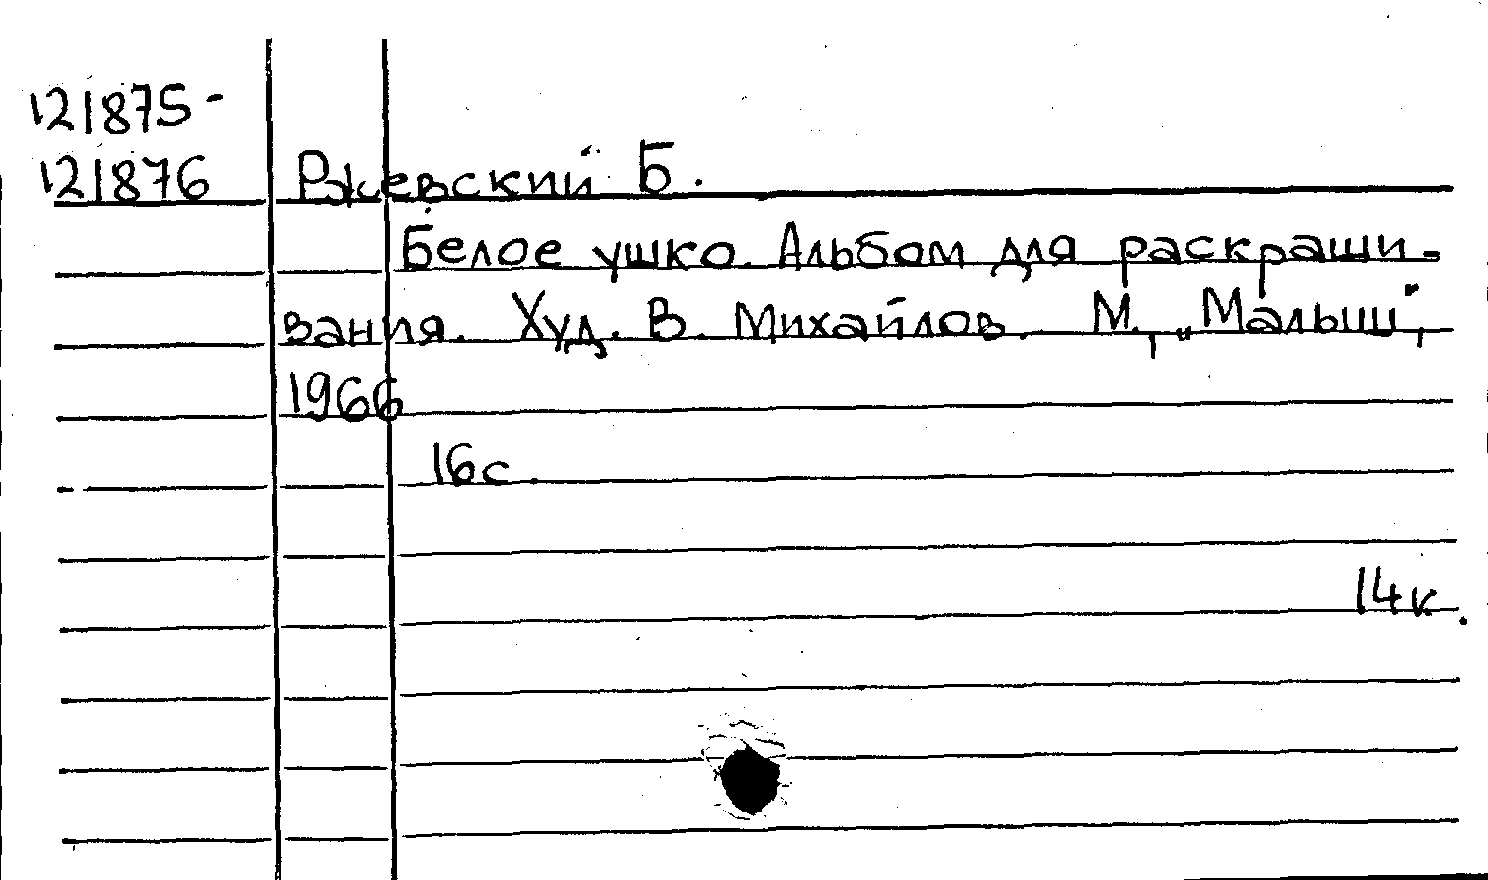 121875-
121876 Ржевский Б.
Белое ушко. Альбом для раскраши-
вания. Худ. В. Михайлов. М., „Малыш",
1966
16с.
14к.